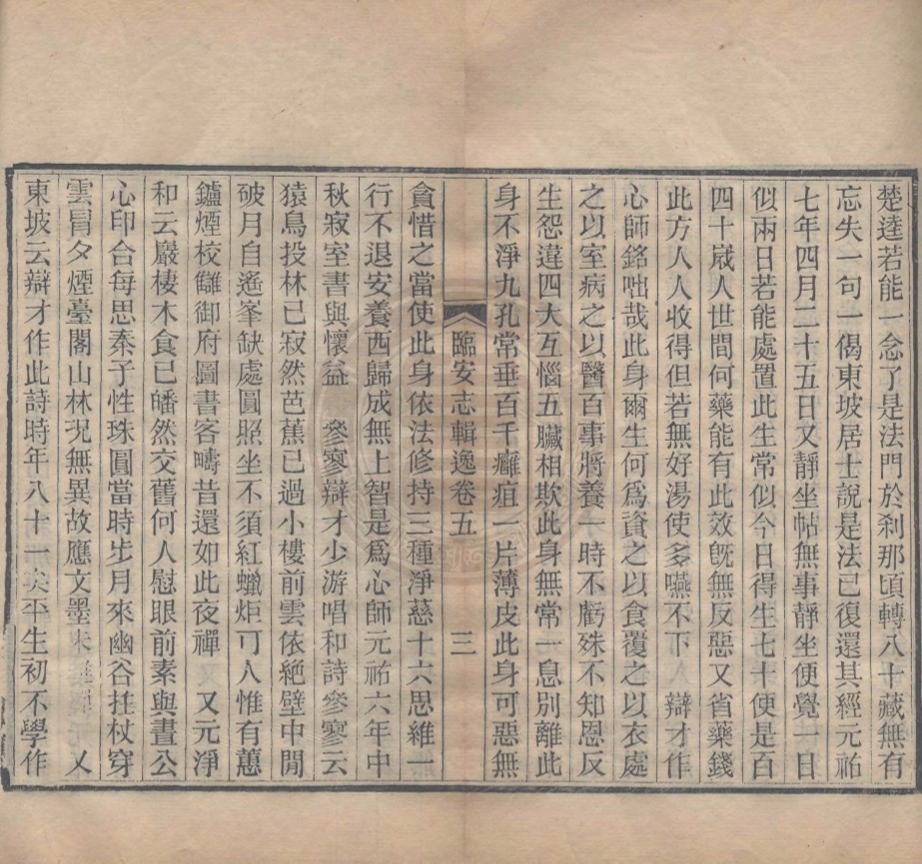 楚逵若能一念了是法門於剎那頃轉八十藏無有
忘失一句一偈東坡居士說是法已復還其經元祐
七年四月二十五日又靜坐帖無事靜坐便覺一日
似兩日若能處置此生常似今日得生七十便是百
四十歲人世間何藥能有此效旣無反惡又省藥錢
此方人人收得但若無好湯使多嚥不下　辯才作
心師銘咄哉此身爾生何爲資之以食覆之以衣處
之以室病之以醫百事將養一時不虧殊不知恩反
生怨違四大互惱五臟相欺此身無常一息別離此
身不淨九孔常垂百千癰疽一片薄皮此身可惡無
臨安志輯逸卷五　三
貪惜之當使此身依法修持三種淨慈十六思維一
行不退安養西歸成無上智是爲心師元祐六年中
秋寂室書與懷益　參寥辯才少游唱和詩參寥云
猿鳥投林已寂然芭蕉已過小樓前雲依絕壁中間
破月自遙峯缺處圓照坐不須紅蠟炬可人惟有蕙
鑪煙校讎御府圖書客疇昔還如此夜禪　又元淨
和云巖棲木食已皤然交舊何人慰眼前素與晝公
心印合每思秦子性珠圓當時步月來幽谷拄杖穿
雲冒夕煙臺閣山林況無異故應文墨未　又
東坡云辯才作此詩時年八十一矣平生初不學作